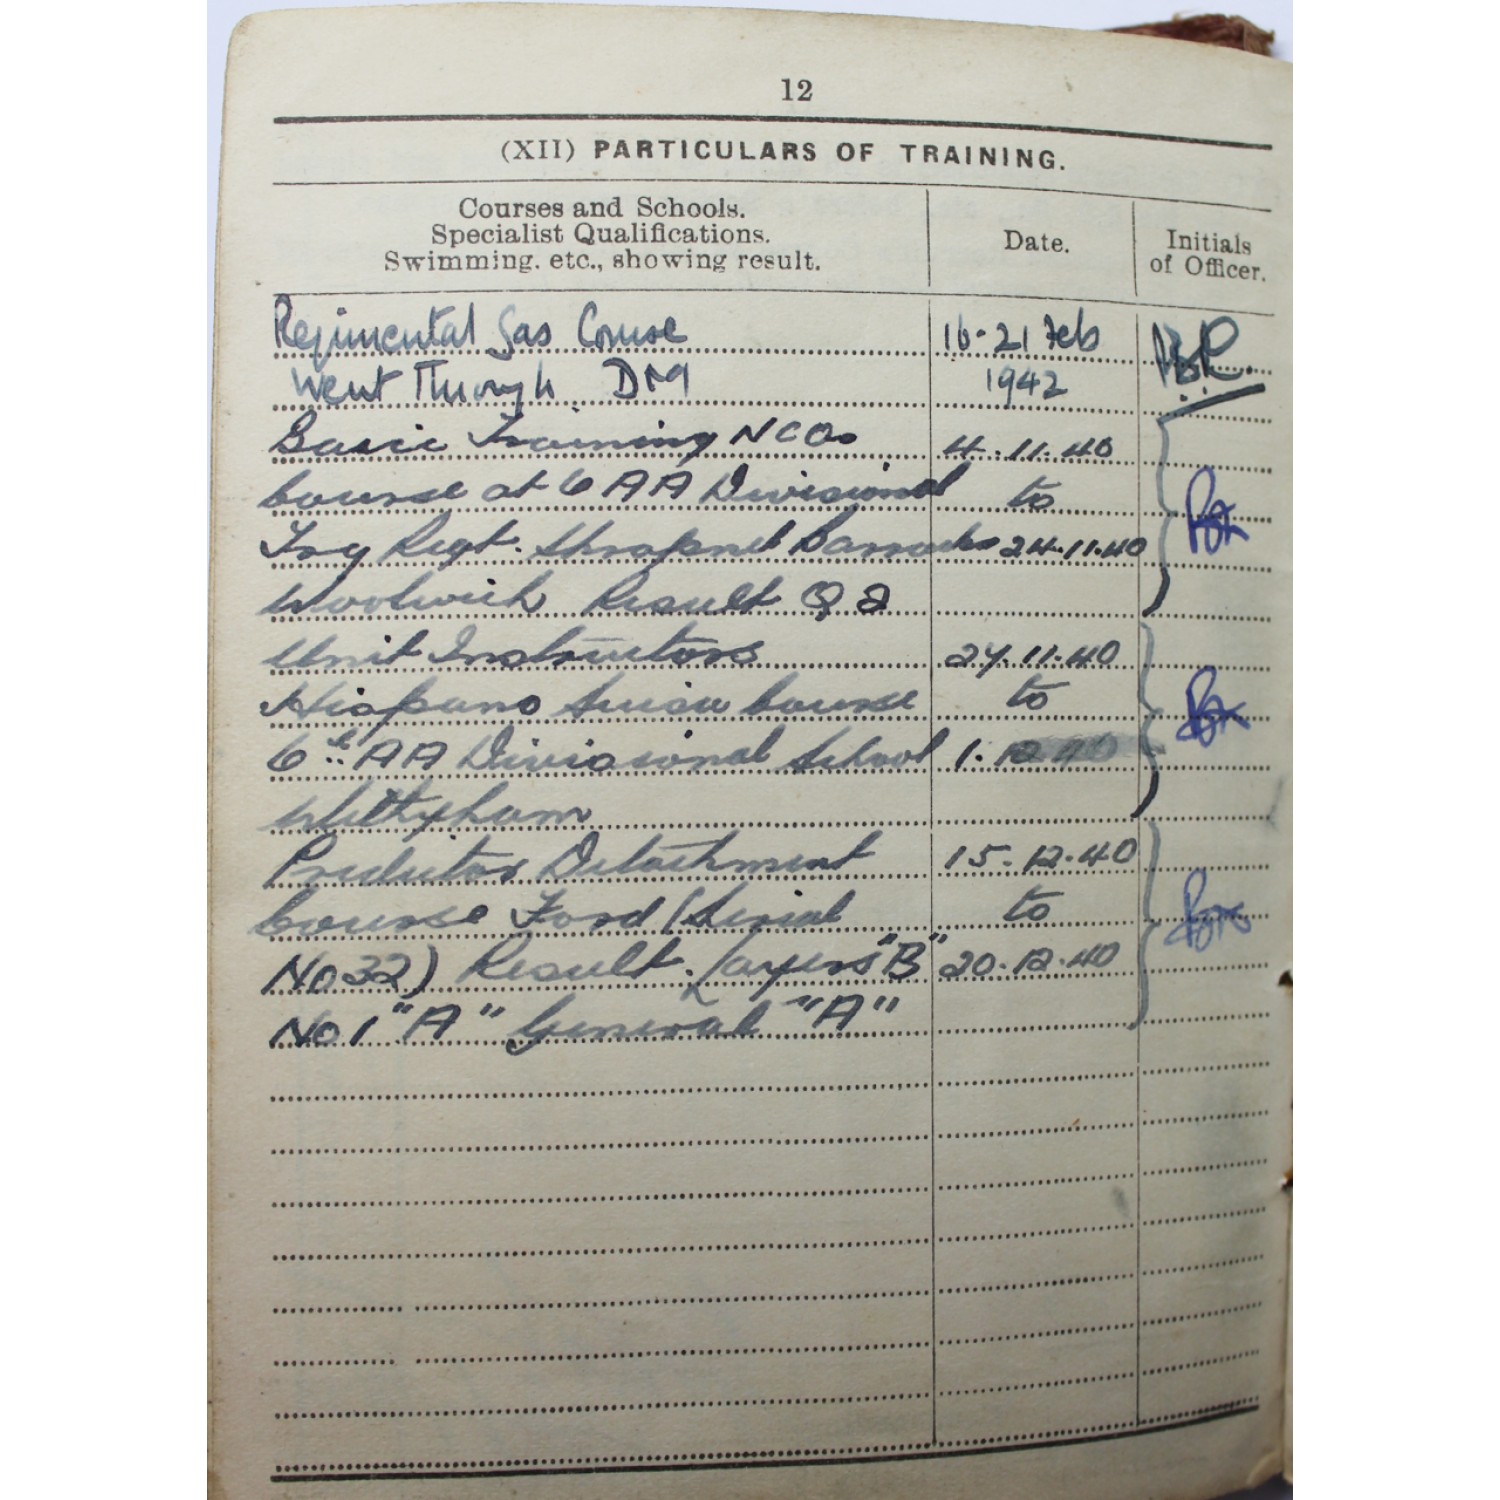 12
(XII) PARTICULARS OF TRAINING.
Courses and Schools.
Specialist Qualifications.
Swimming. etc., showing result.
Date.
Initials
of Officer.
Regimental Gas Course 16-21 Feb
Went Through DM 1942
Basic Training NCOs 4.11.40
Course at 6 AA Divisional to
Trg Regt. Shrapnel Barracks 24.11.40
Woolwich Result Q2
Unit Instructors 27.11.40
Hispano Suisa Course to
6th AA Divisional School 1.12.40
Wittersham
Predictor Detachment 15.12.40
Course Ford (Serial to
No 32) Result. Layers "B" 20.12.40
No 1 "A" General "A"